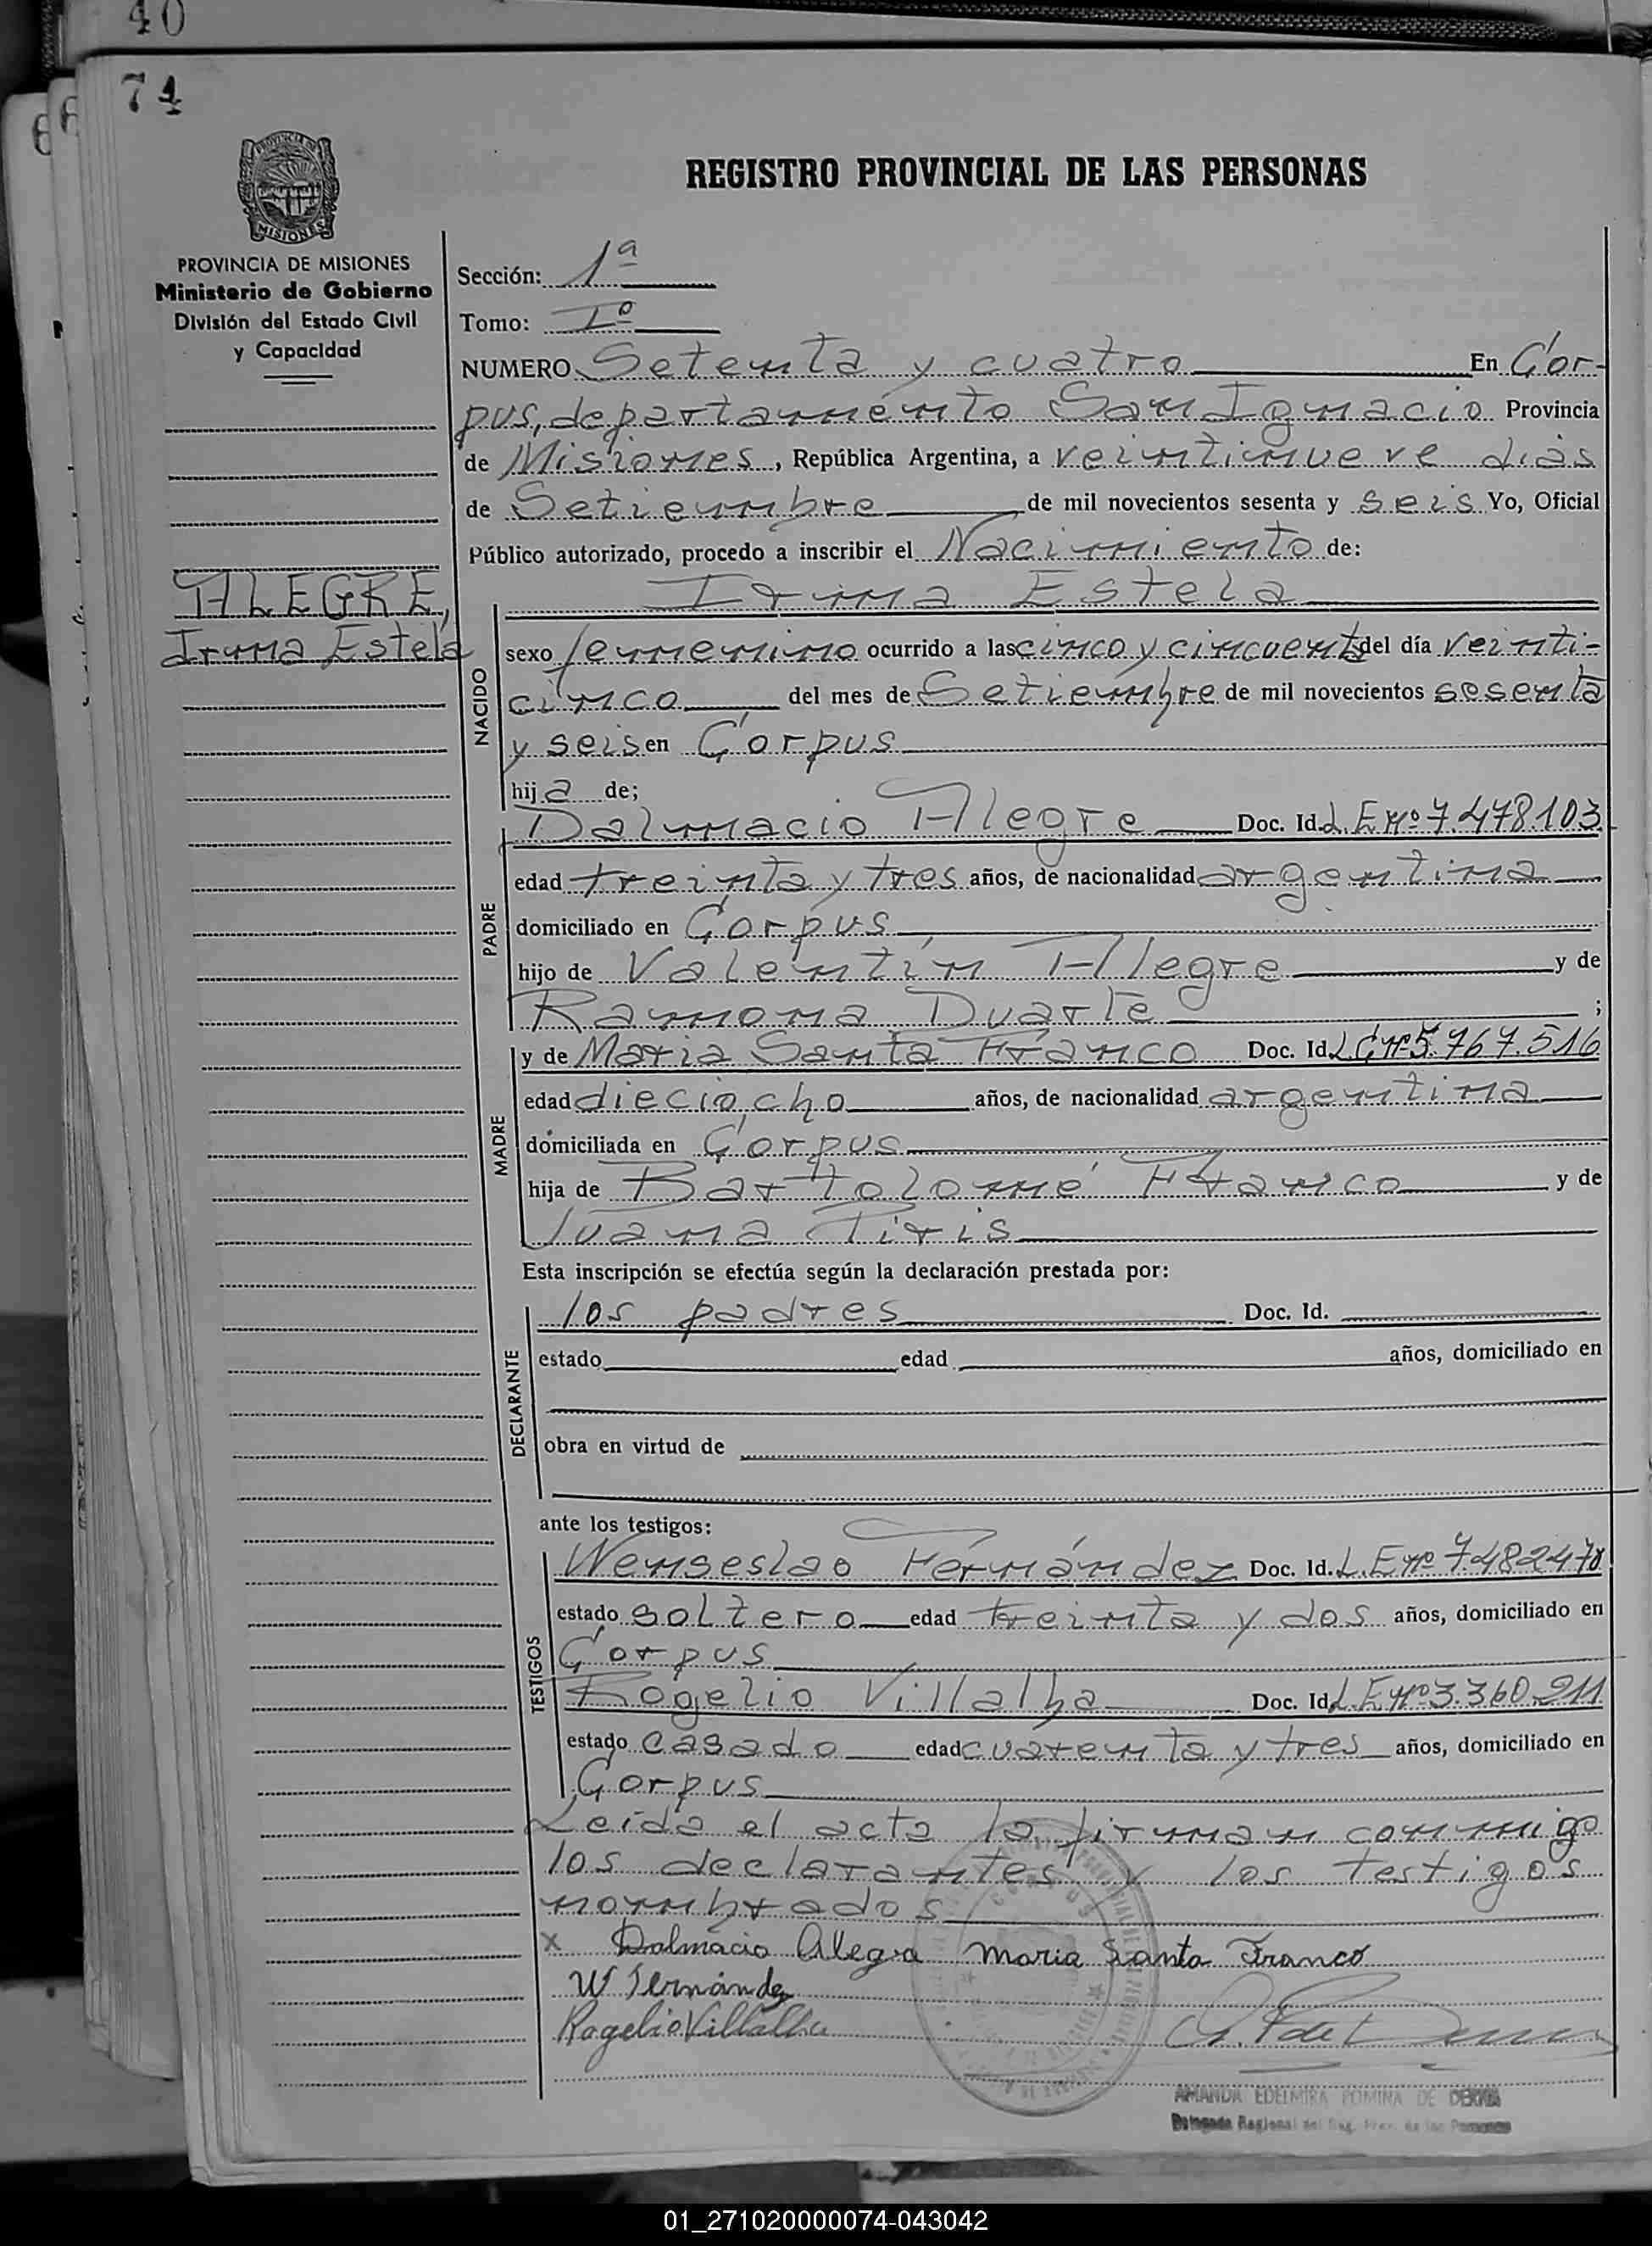 40
74
REGISTRO PROVINCIAL DE LAS PERSONAS
MISIONES
PROVINCIA DE MISIONES
Ministerio de Gobierno
División del Estado Civil
y Capacidad
Sección: 1ª
Tomo: Iº
NUMERO Setenta y cuatro En Cor-
pus, departamento San Ignacio Provincia
de Misiones, República Argentina, a veintinueve dias
de Setiembre de mil novecientos sesenta y seis Yo, Oficial
Público autorizado, procedo a inscribir el Nacimiento de:
ALEGRE,
Irma Estela
Irma Estela
NACIDO
sexo femenino ocurrido a las cinco y cincuenta del día veinti-
cinco del mes de Setiembre de mil novecientos sesenta
y seis en Corpus
hija de;
PADRE
Dalmacio Alegre Doc. Id. L.E Nº 7.478.103
edad treinta y tres años, de nacionalidad argentina
domiciliado en Corpus
hijo de Valentín Alegre y de
Ramona Duarte ;
MADRE
y de Maria Santa Franco Doc. Id. L.C Nº 5.767.516
edad dieciocho años, de nacionalidad argentina
domiciliada en Corpus
hija de Bartolomé Franco y de
Juana Piris
Esta inscripción se efectúa según la declaración prestada por:
DECLARANTE
los padres Doc. Id.
estado edad años, domiciliado en
obra en virtud de
ante los testigos:
TESTIGOS
Wenseslao Fernández Doc. Id. L.E Nº 7482478
estado soltero edad treinta y dos años, domiciliado en
Corpus
Rogelio Villalba Doc. Id. L.E Nº 3.360.211
estado casado edad cuarenta y tres años, domiciliado en
Corpus
Leída el acta la firman conmigo
los declarantes y los testigos
nombrados
x Dalmacio Alegre Maria Santa Franco
W Fernández
Rogelio Villalba
AMANDA EDELMIRA POMINA DE
Delegada Regional del Reg. Prov. de las Personas
01_271020000074-043042